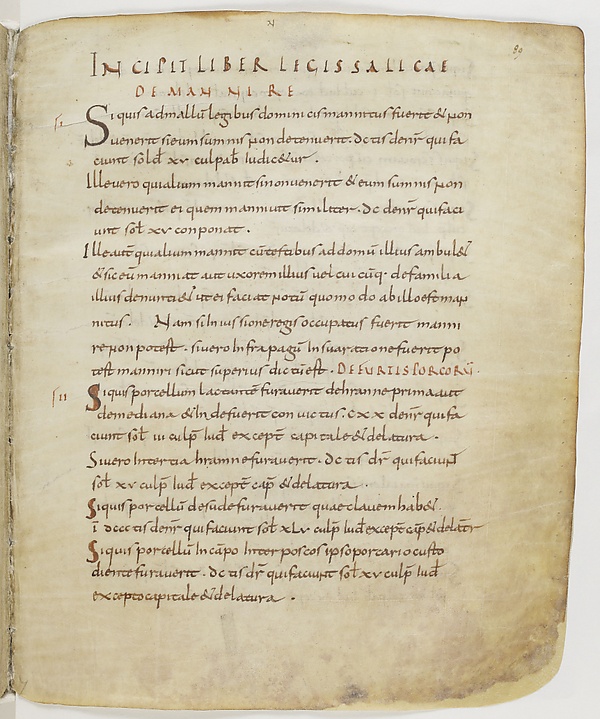 N
89
INCIPIT LIBER LEGIS SALICAE
DE MANNIRE
Siquis ad mallū legibus dominicis mannitus fuerit & non
venerit si eum sumnis non detenuerit. dc tis denr̄ qui fa
ciunt sold xv culpab iudic&ur.
Ille vero qui alium mannit si non venerit & eum sumnis non
detenuerit ei quem manniuit similiter. dc denr̄ qui faci
unt sol xv conponat.
Ille aut qui alium mannit cū testibus ad domū illius ambul&
& sic eū manniat aut uxorem illius vel cuicūq· de familia
illius denunti& ut ei faciat notū quomodo ab illo est man
nitus. Nam si In iussione regis occupatus fuerit manni
re non potest. si vero Infra pagū In sua ratione fuerit po
test manniri sicut superius dictū est. DE FURTIS PORCORŪ.
Siquis porcellum lactante furaverit de hranne prima aut
de mediana & Inde fuerit convictus. cxx denr̄ qui fa
ciunt sol iii culp iud except capitale & delatura.
Si vero In tertia hramne furaverit. dc tis dr̄ qui faciunt
sol xv culp iud except cap & delatura.
Siquis porcellū de sude furaverit quae clavem hab&.
ī dccc tis denr̄ qui faciunt sol xLv culp iud except cap & delatr
Siquis porcellū In cāpo Inter porcos ipso porcario custo
diente furaverit. dc tis dr̄ qui faciunt sol xv culp iud
excepto capitale & delatura.